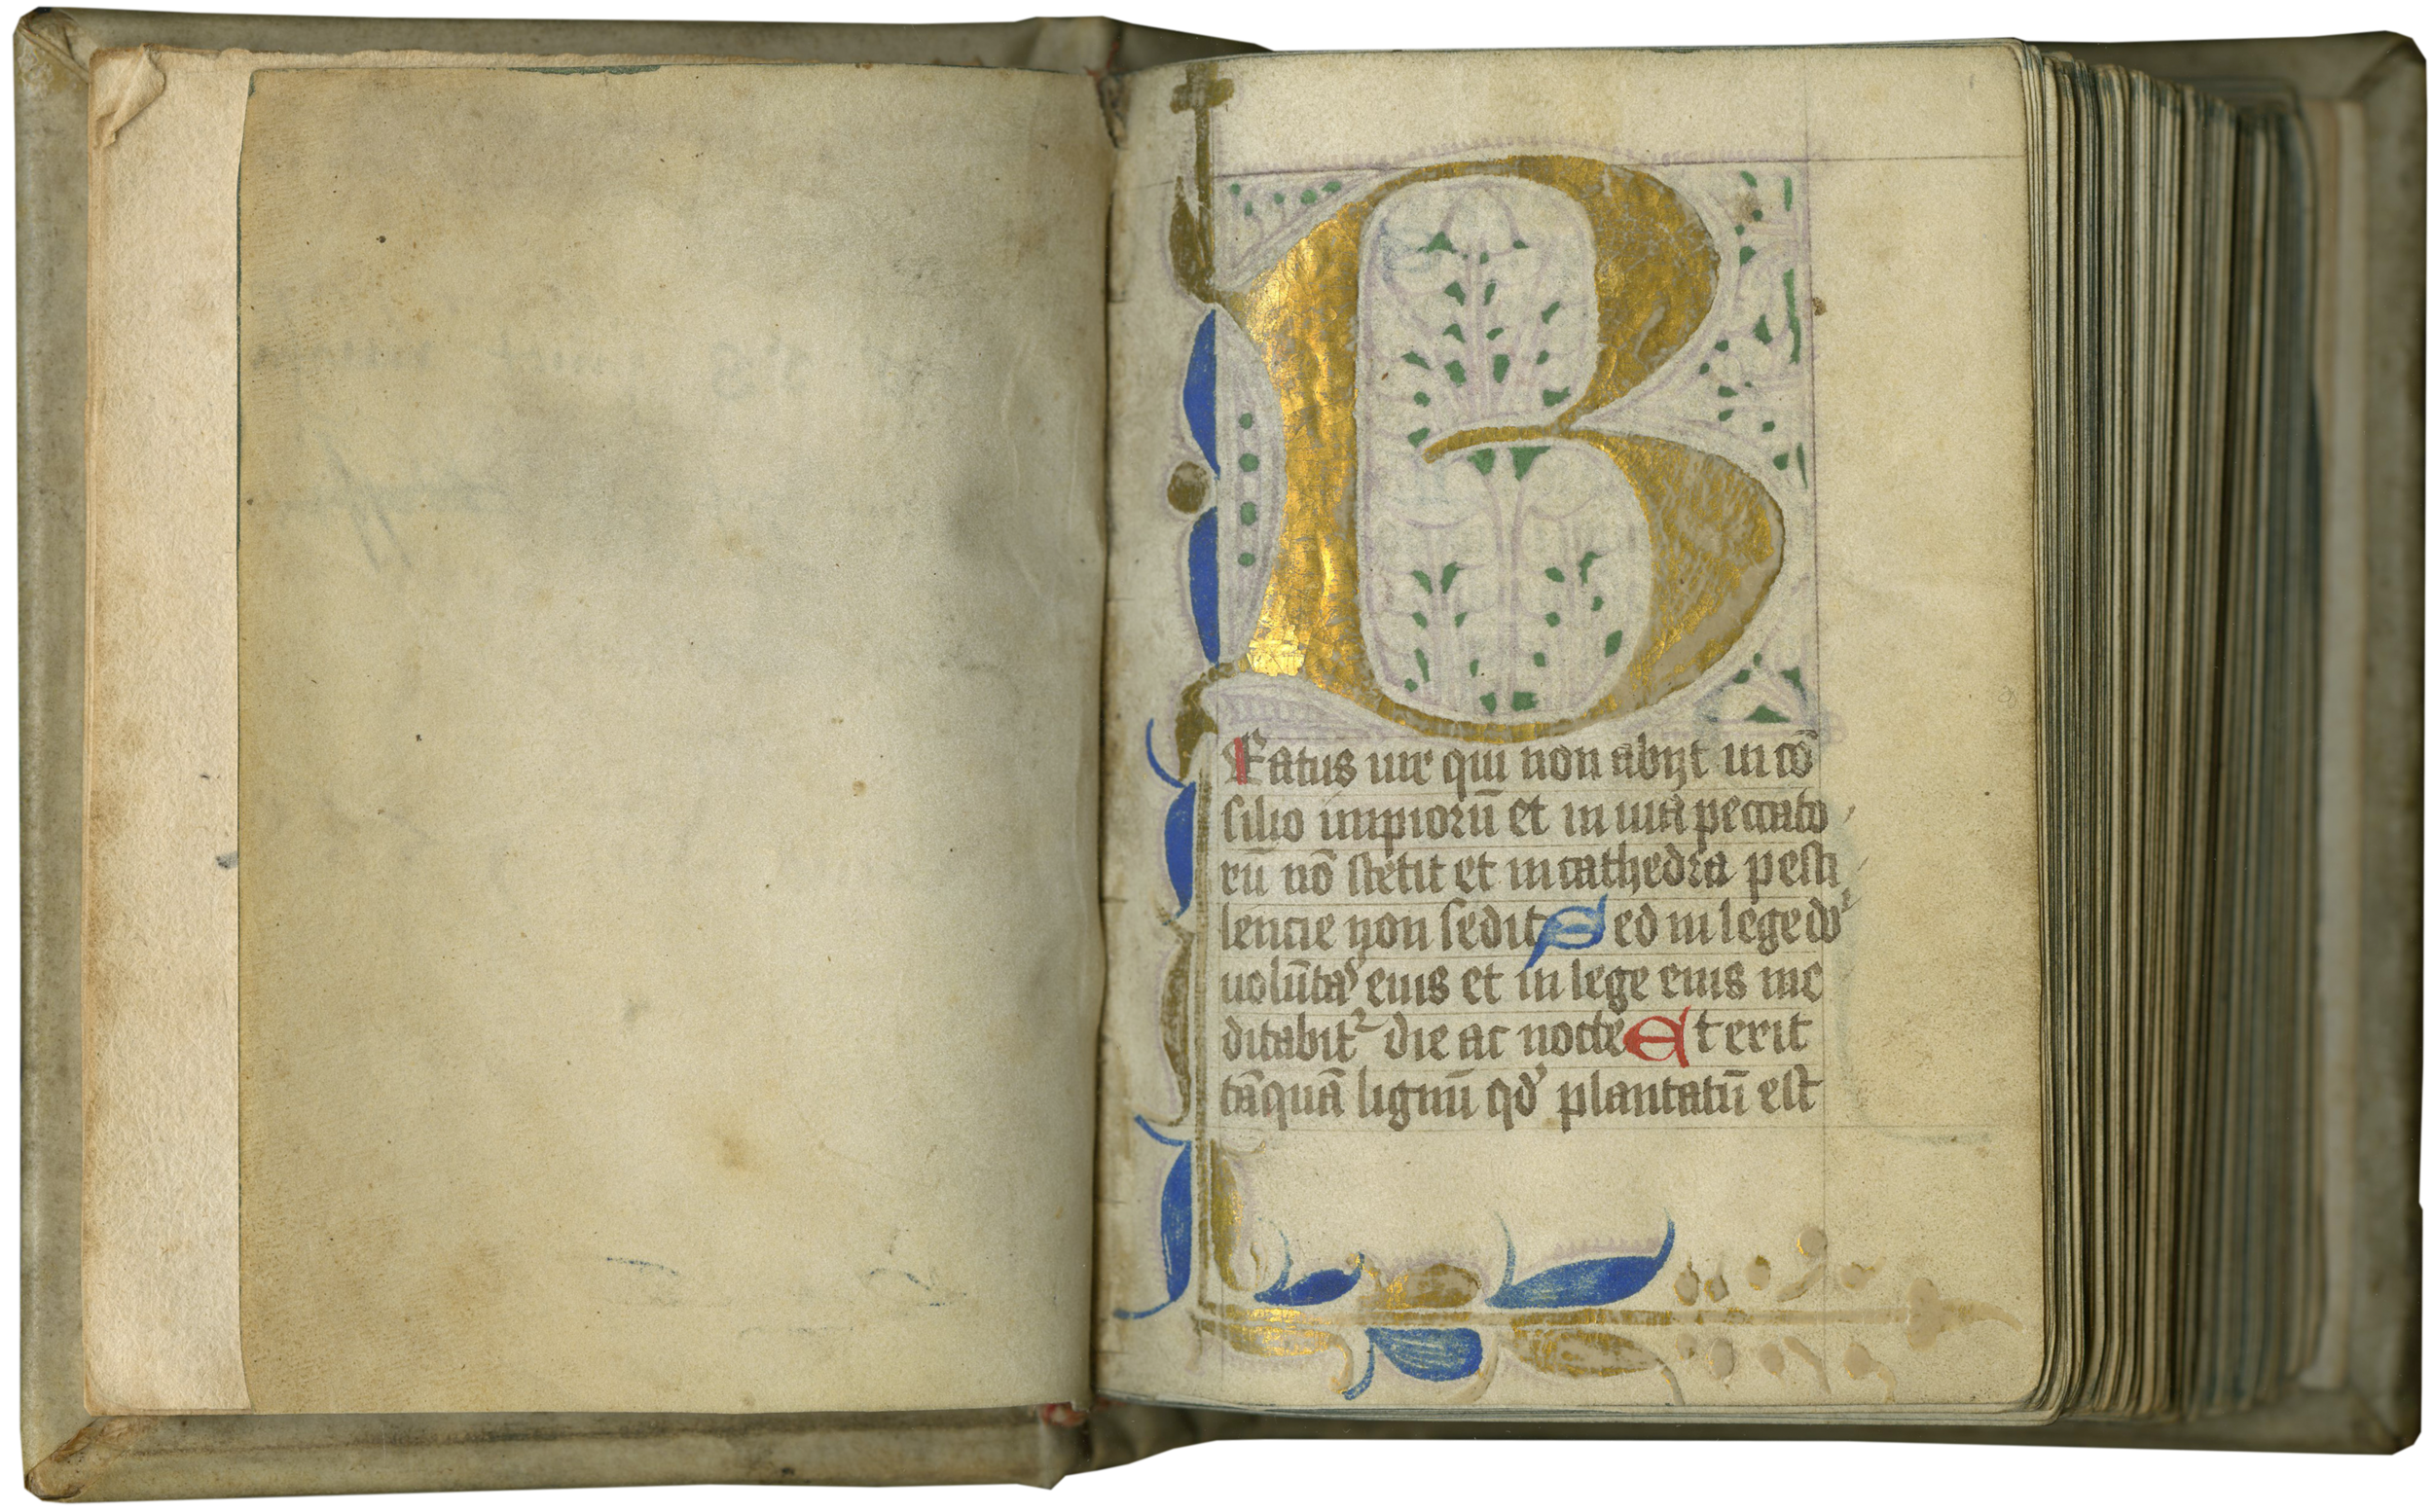 B
Eatus uir qui non abijt in cō
silio impiorū et in uia peccato
rū nō stetit et in cathedra pesti
lencie non sedit Sed in lege dn̄i
uolūtas eius et in lege eius me
ditabit᷑ die ac nocte Et erit
tāquā lignū qđ plantatū est